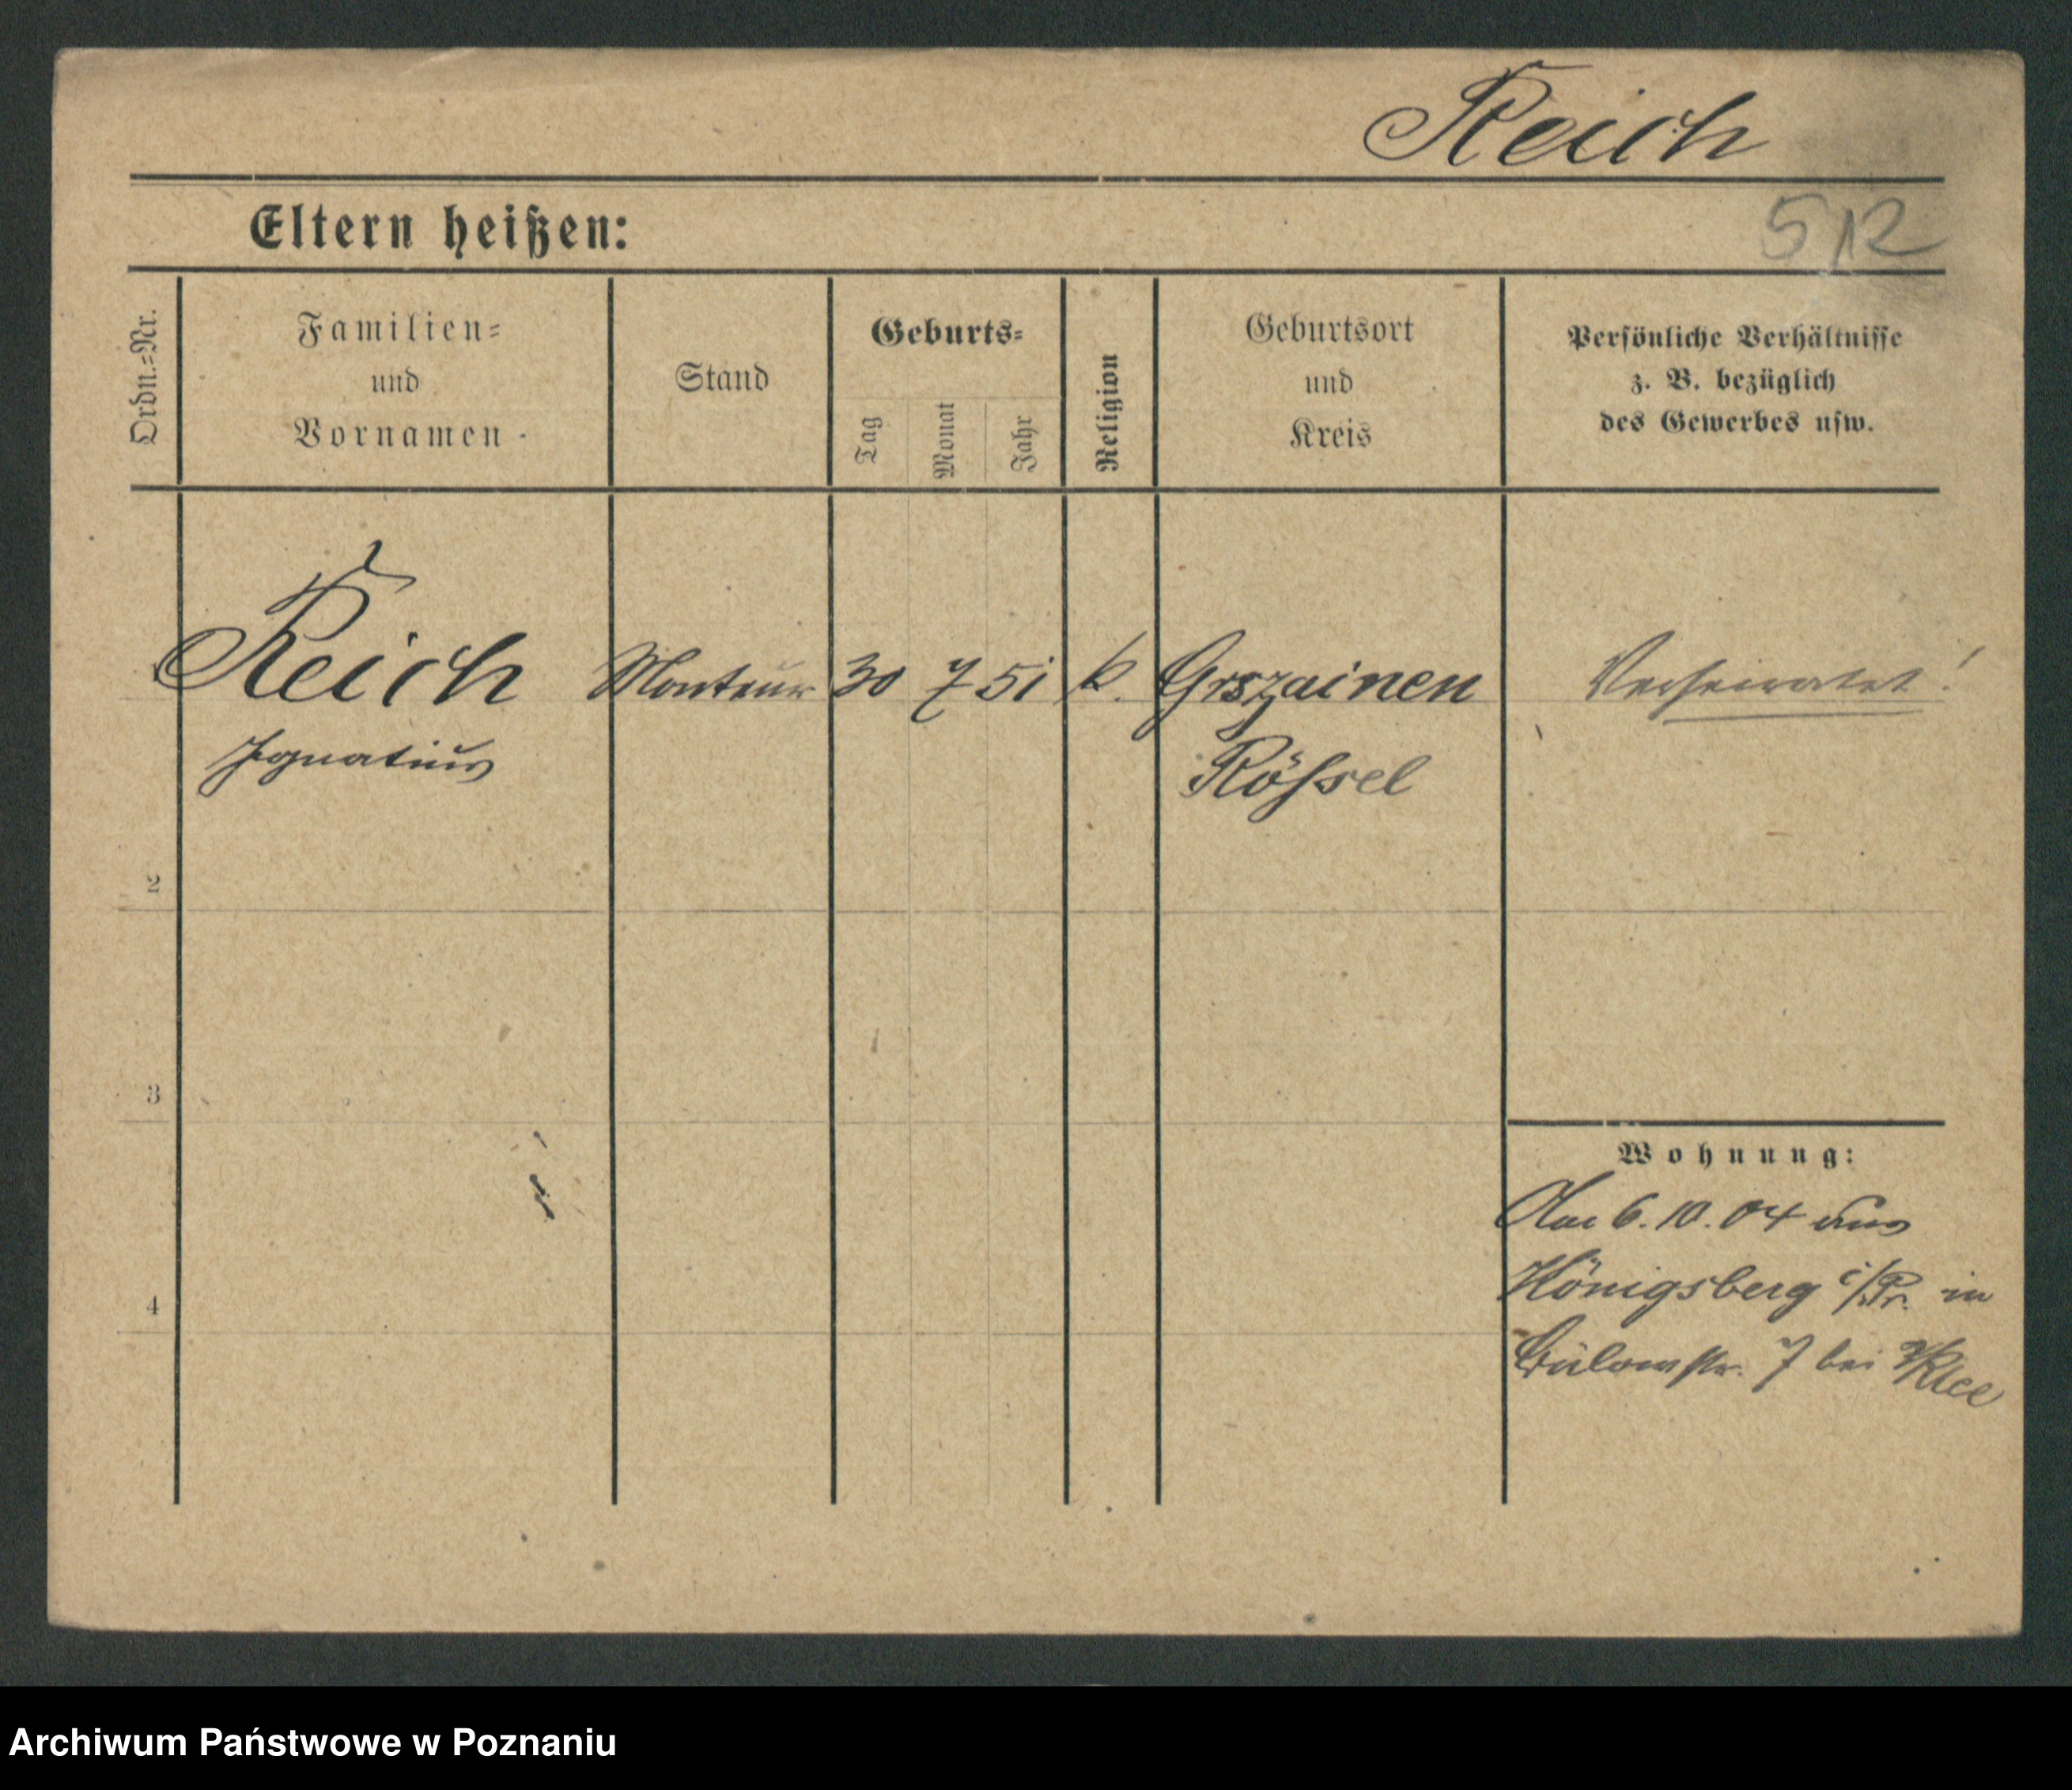 Reich
Eltern heißen:
512
Ordn.=Nr.
Familien=
und
Vornamen
Stand
Geburts=
Tag
Monat
Jahr
Religion
Geburtsort
und
Kreis
Persönliche Verhältnisse
z. B. bezüglich
des Gewerbes usw.
Reich Monteur 30 7 51 k. Grszainen Verheiratet!
Ignatius Rößel
2
3
4
Wohnung:
Am 6. 10. 04 aus
Königsberg i/Pr. in
Bülowstr. 7 bei Klee
Archiwum Państwowe w Poznaniu